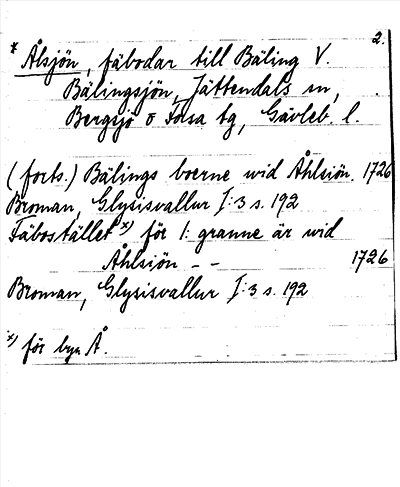 2.
* Ålsjön, fäbodar till Bäling V.
Bälingsjön, Jättendals sn,
Bergsjö o Forsa tg, Gävleb. l.
(forts.) Bälings boerne wid Åhlsiön. 1726
Broman, Glysisvallur I:3 s. 192
Fäbostället x) för 1: granne är wid
Åhlsiön - - 1726
Broman, Glysisvallur I:3 s. 192
x) för byn Å.